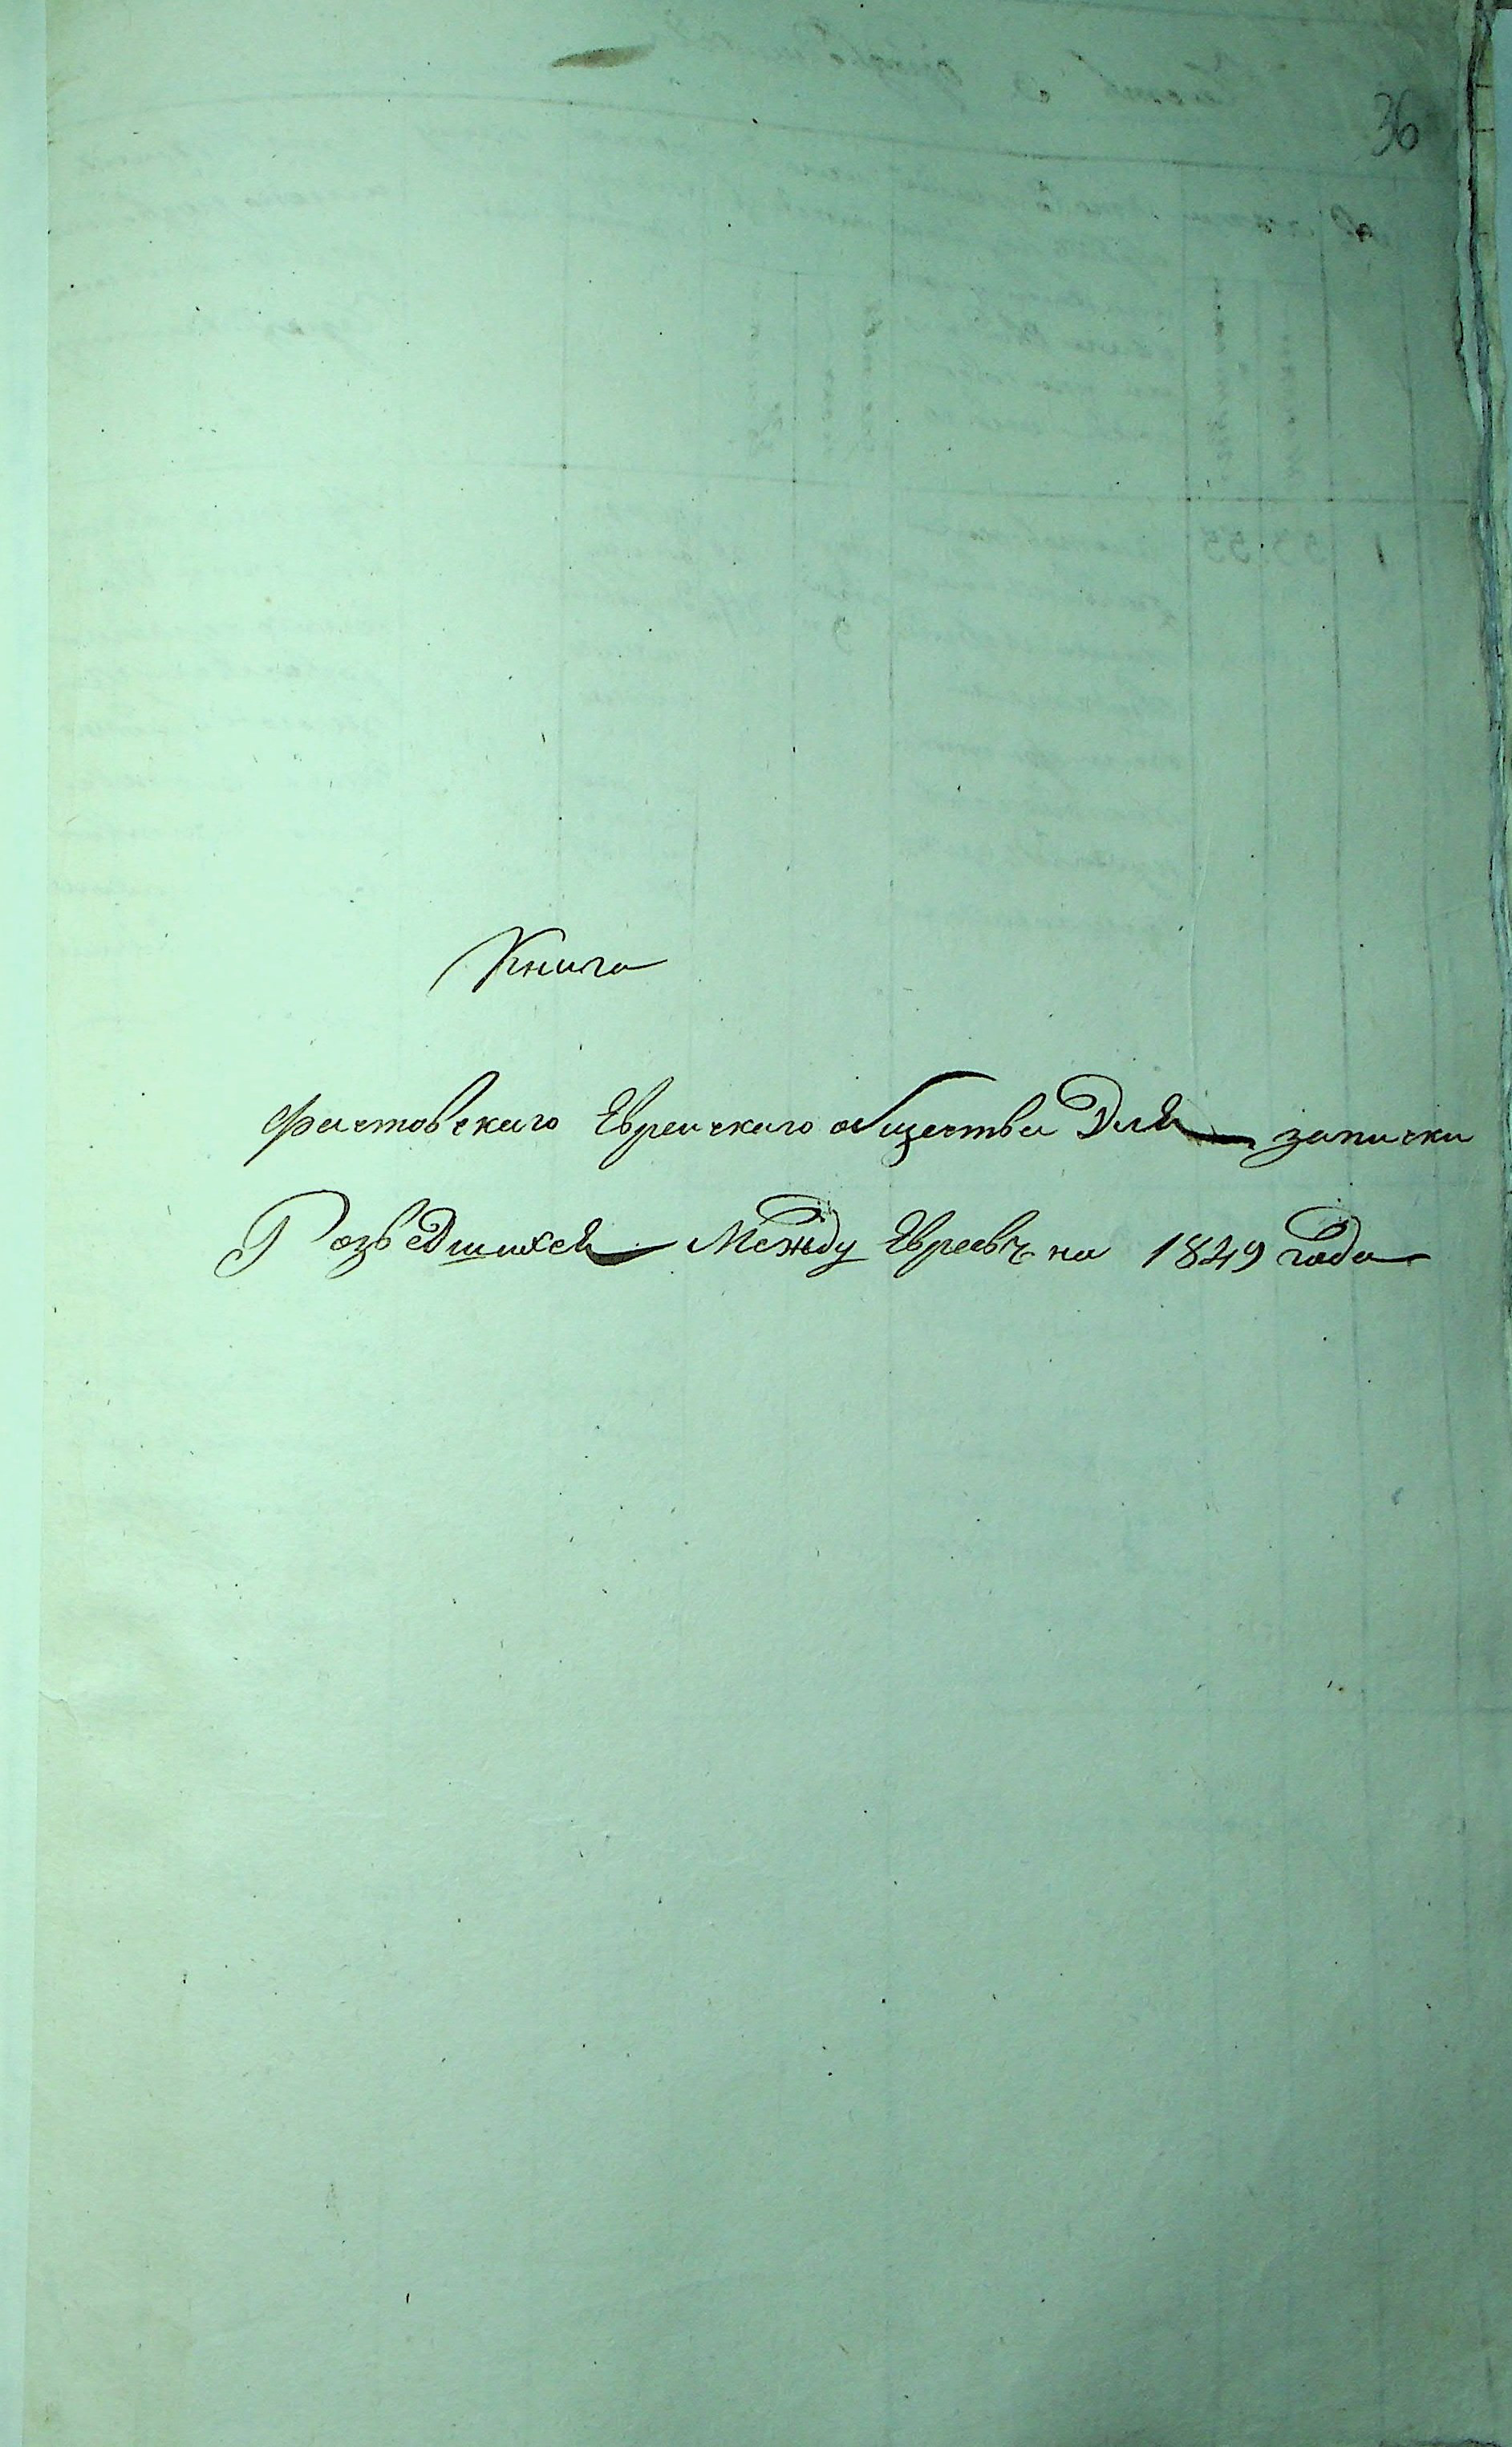 36
Книга
Фастовского Еврейского общества Для записки
Розведшихся Между Евреевъ на 1849 года